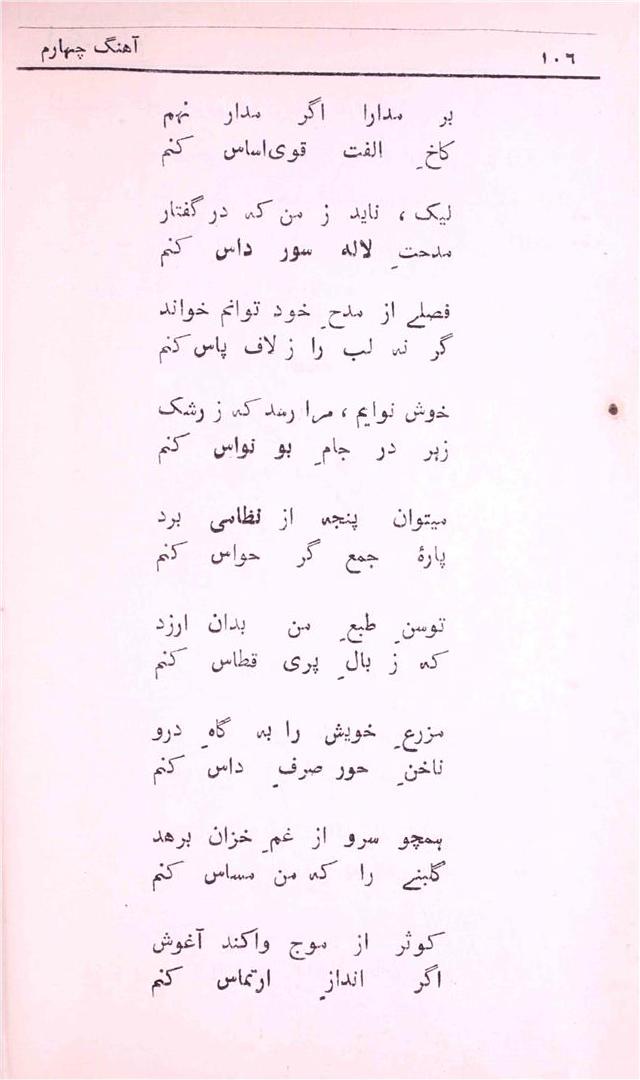 ۱۰۶ آهنگ چهارم
بر مدارا اگر مدار نهم
کاخِ الفت قوی‌اساس کنم
لیک، ناید ز من که در گفتار
مدحتِ لاله سور داس کنم
فصلے از مدحِ خود توانم خواند
گر نه لب را ز لاف پاس کنم
خوش نوایم، مرا رسد که ز رشک
زہر در جامِ بو نواس کنم
میتوان پنجه از نظامی برد
پارۂ جمع گر حواس کنم
توسنِ طبعِ من بدان ارزد
که ز بالِ پری قطاس کنم
مزرعِ خویش را به گاهِ درو
ناخنِ حور صرفِ داس کنم
ہمچو سرو از غمِ خزان برهد
گلبنے را که من مساس کنم
کوثر از موج واکند آغوش
اگر اندازِ ارتماس کنم